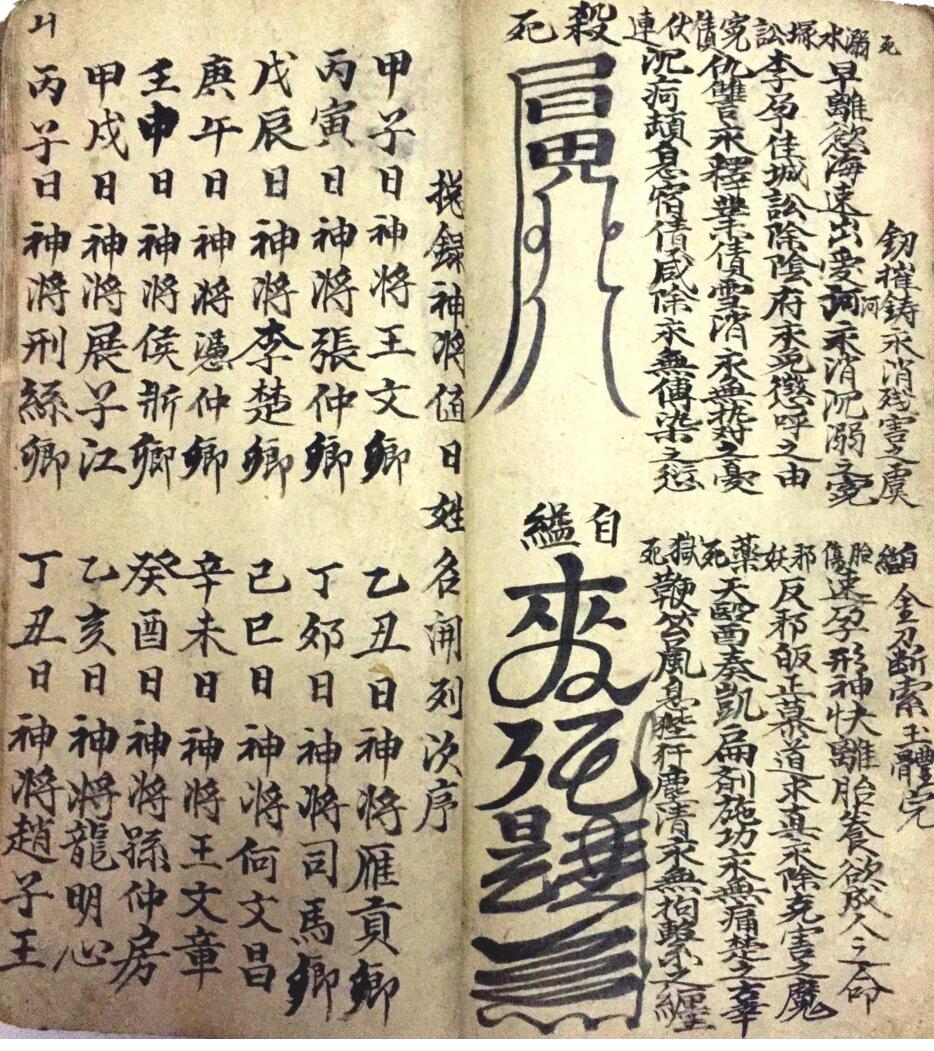 死
釰摧鋳永消残害之虞
溺水
早離慾海速出愛河永消沉溺之寃
塚訟
李孕佳城訟除陰府永免懲呼之由
寃債
仇讐永釋業債雪消永無執对之憂
伏連
沉疴頓息宿債咸除永無傅染之愆
殺死
自縊
金刃断索玉體完
胎傷
速孕形神快離胎養欲成人之命
邪妖
反邪皈正慕道求真永除克害之魔
薬死
天毉奏凱扁剤施功永無痛楚之辜
獄死
鞭笞風息陛犴塵清永無拘繫之纏
自縊
提録神将值日姓名開列次序
甲子日神将王文卿
乙丑日神将雁貢卿
丙寅日神将張仲卿
丁卯日神将司馬卿
戊辰日神将李楚卿
己巳日神将何文昌
庚午日神将憑仲卿
辛未日神将王文章
壬申日神将侯斯卿
癸酉日神将孫仲房
甲戌日神将展子江
乙亥日神将龍明心
丙子日神将刑絲卿
丁丑日神将趙子王